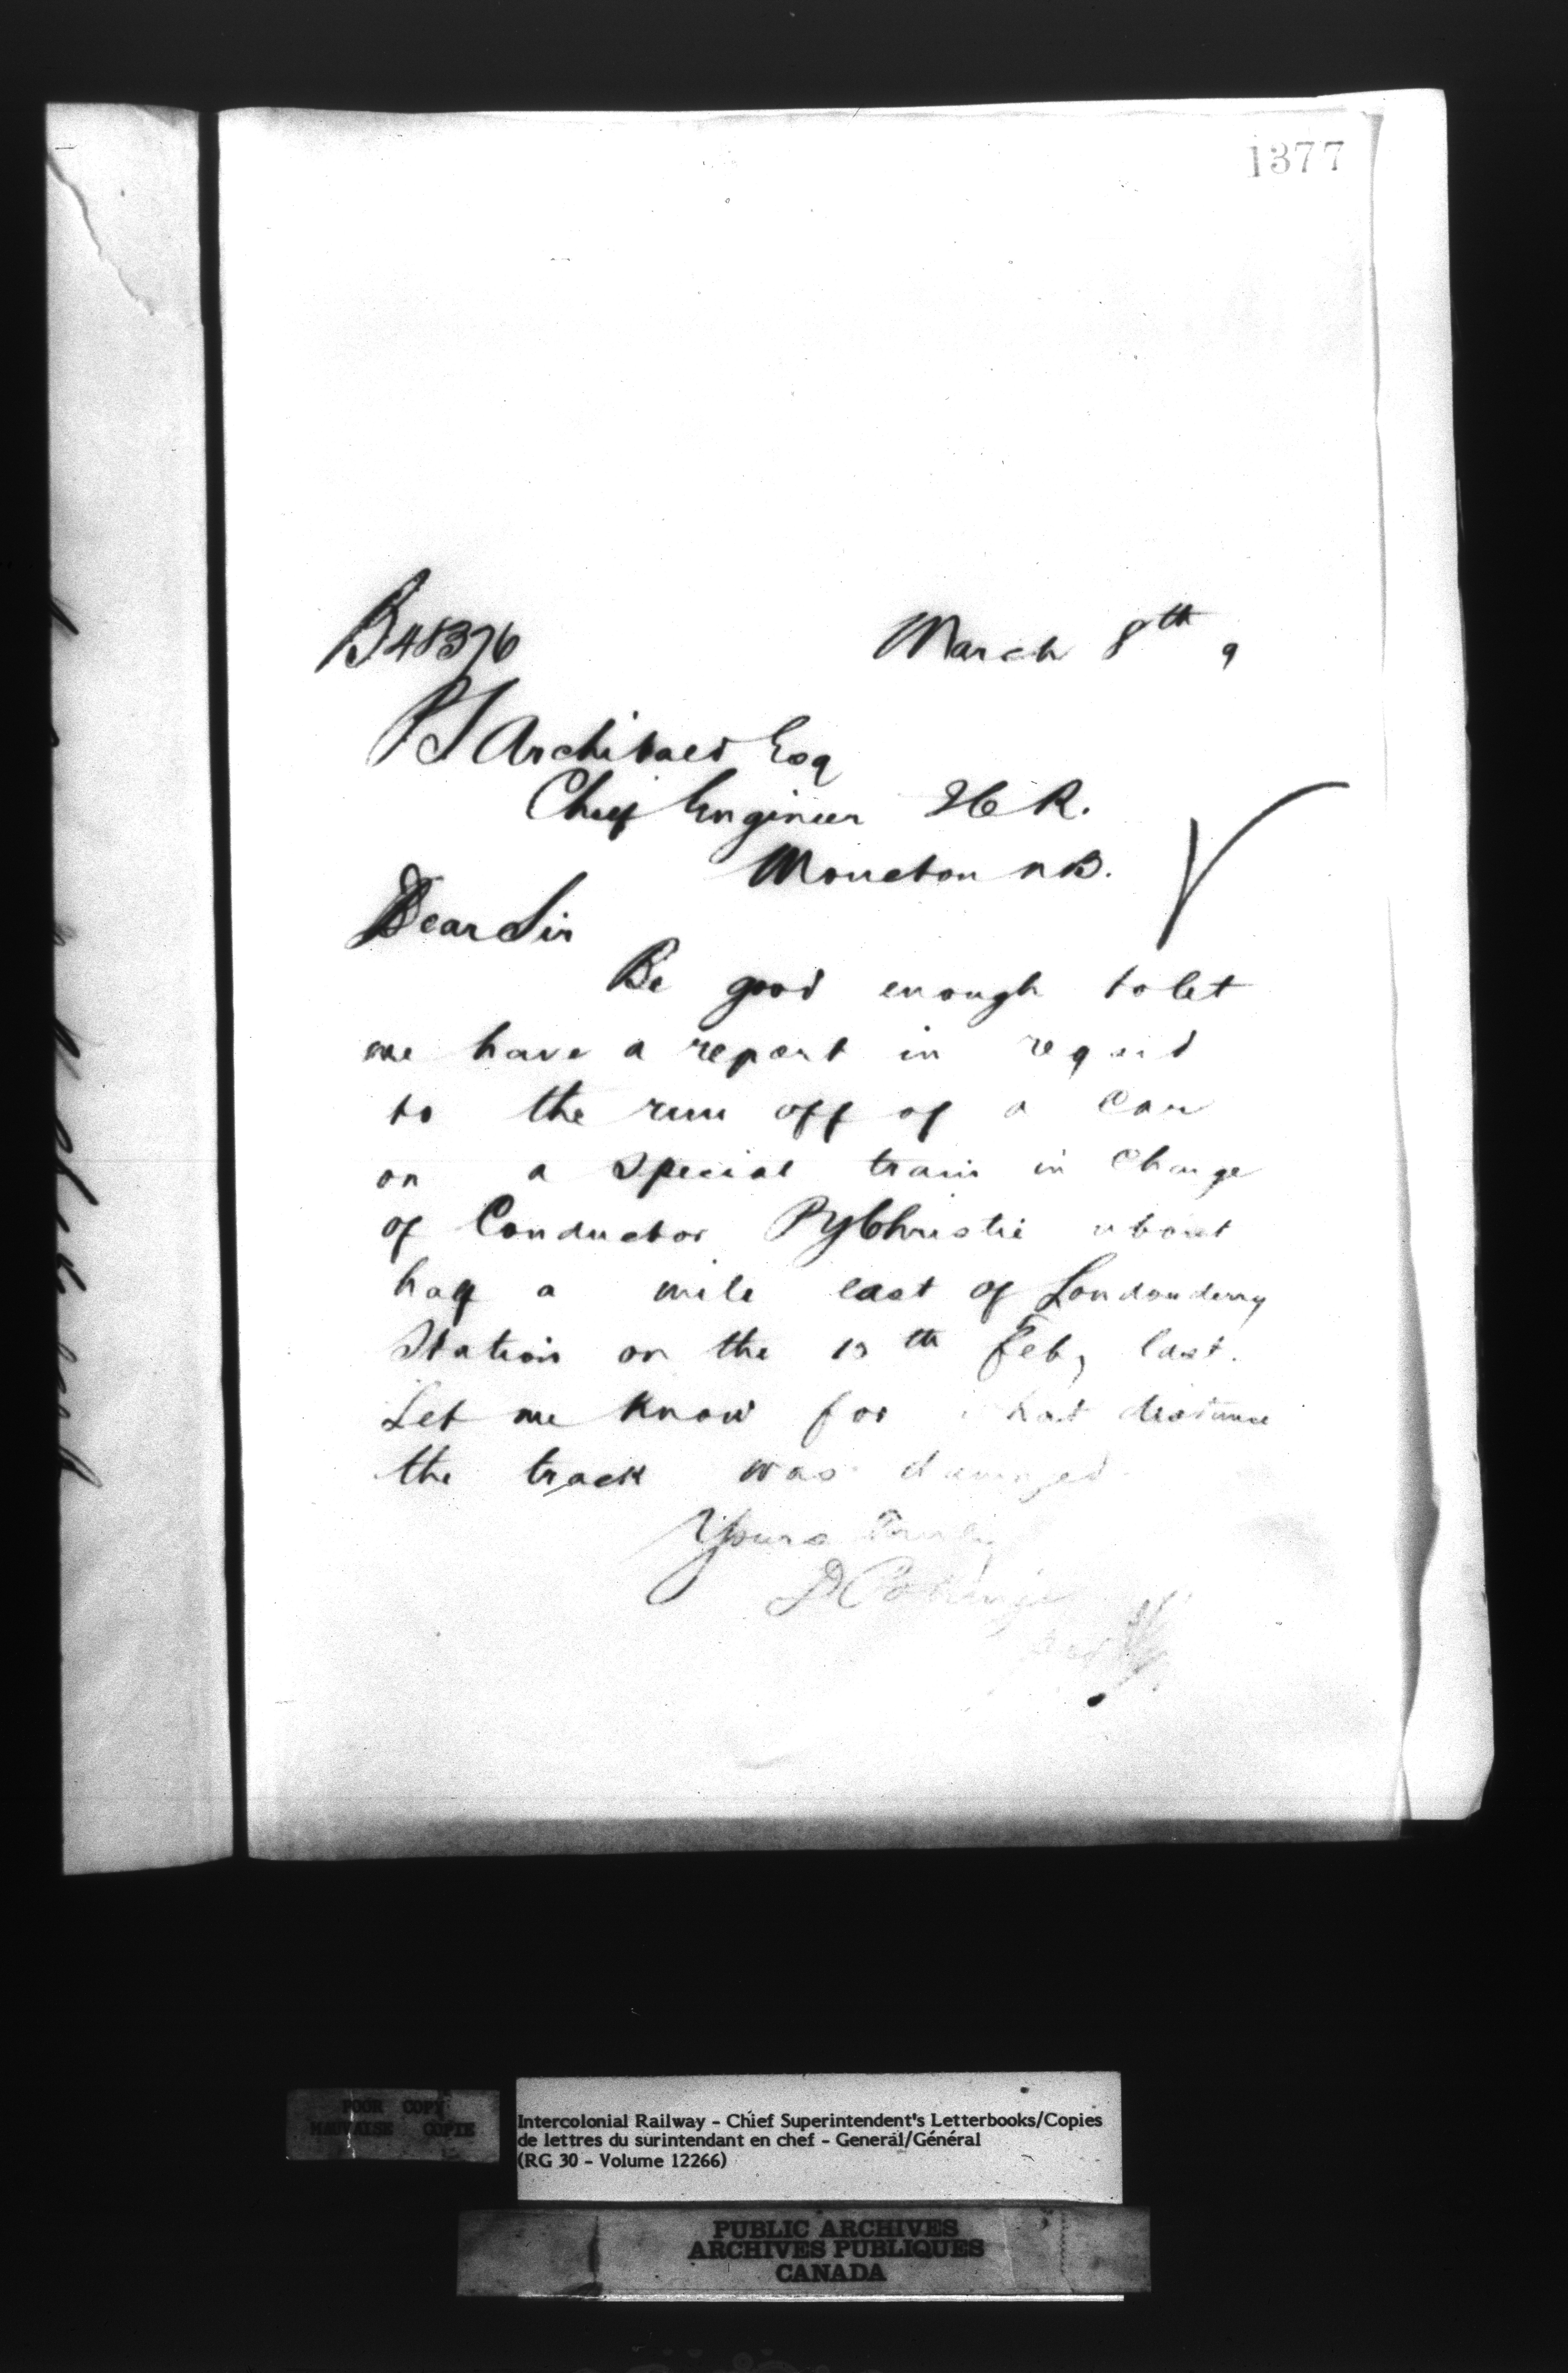 1377
B48376
March 8th 9
P S Archibald Esq
Chief Engineer I C R.
Moncton N B.
Dear Sir
Be good enough to let
me have a report in regard
to the run off of a car
on a Special train in Charge
of Conductor Christie about
half a mile east of Londonderry
Station on the 13th Feb, last.
Let me know for what distance
the track was damaged
Yours Truly
D Pottinger
POOR COPY
MAUVAISE COPIE
Intercolonial Railway - Chief Superintendent's Letterbooks/Copies
de lettres du surintendant en chef - General/Général
(RG 30 - Volume 12266)
PUBLIC ARCHIVES
ARCHIVES PUBLIQUES
CANADA